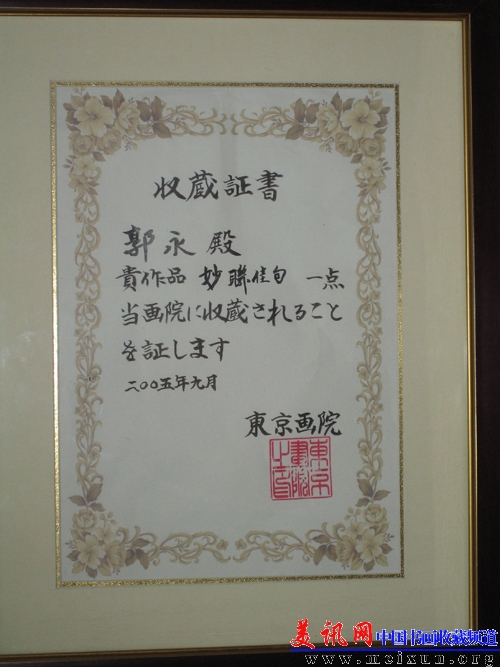 収蔵証書
郭永 殿
貴作品 妙聯佳句 一点
当画院に収蔵されること
を証します
二〇〇五年九月
東京画院
東京
畫院
之印
美讯网 中国书画收藏频道
www.meixun.org